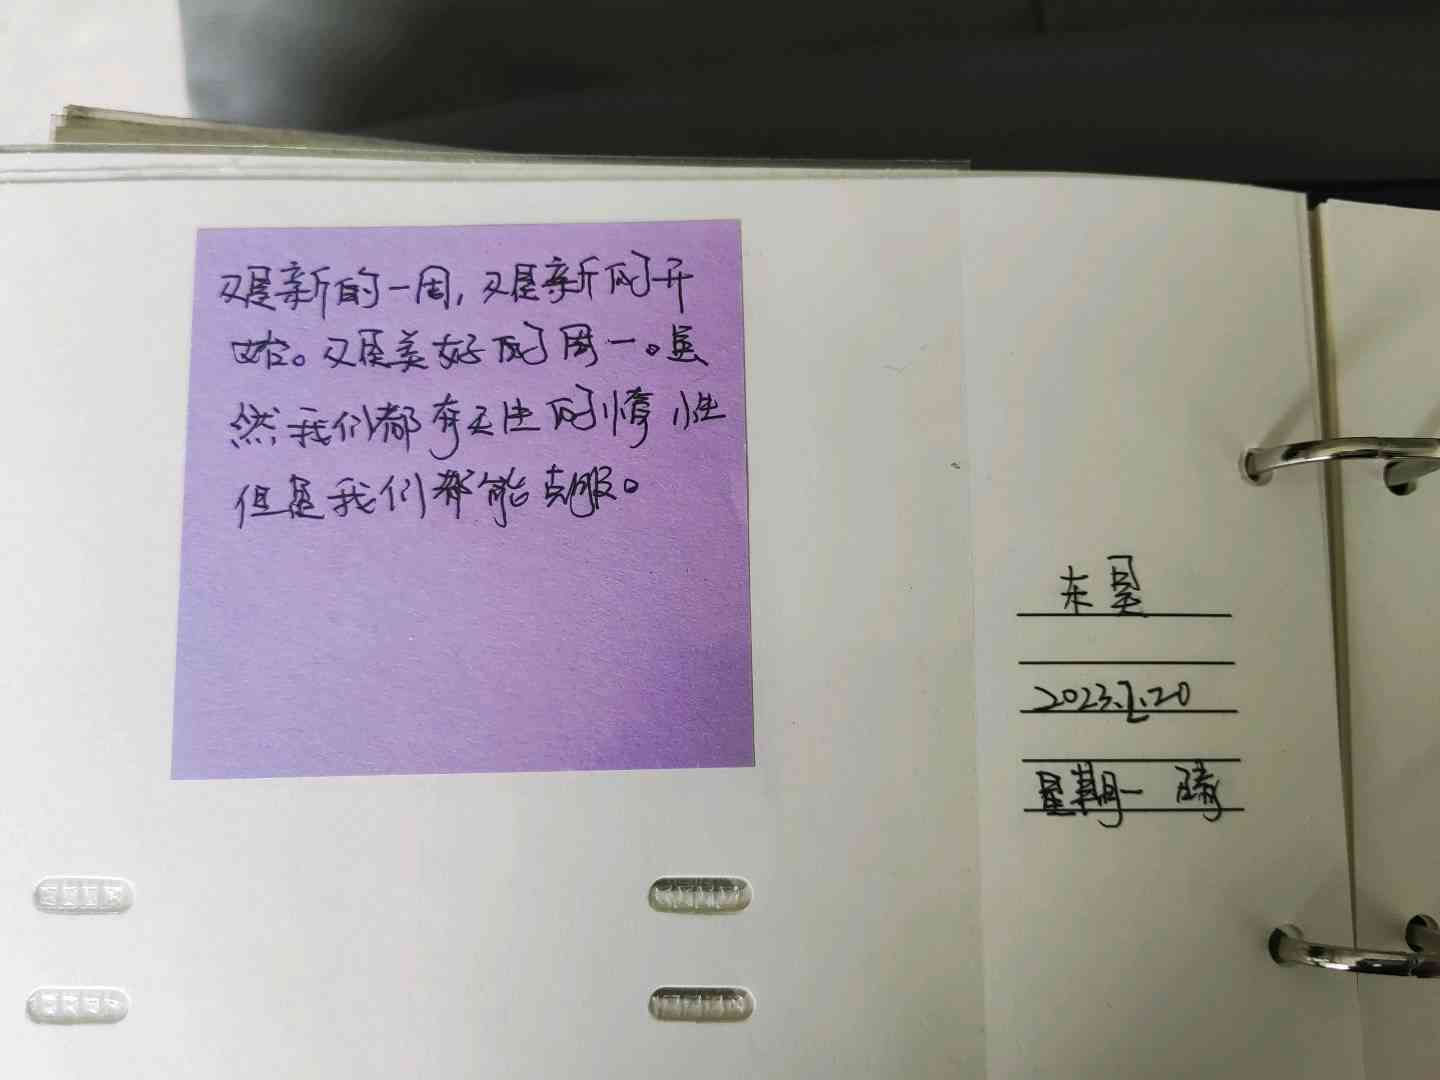 又是新的一周，又是新的开
始。又是美好的周一。虽
然我们都有天性的惰性
但是我们都能克服。
东
2023.2.20
星期一 晴